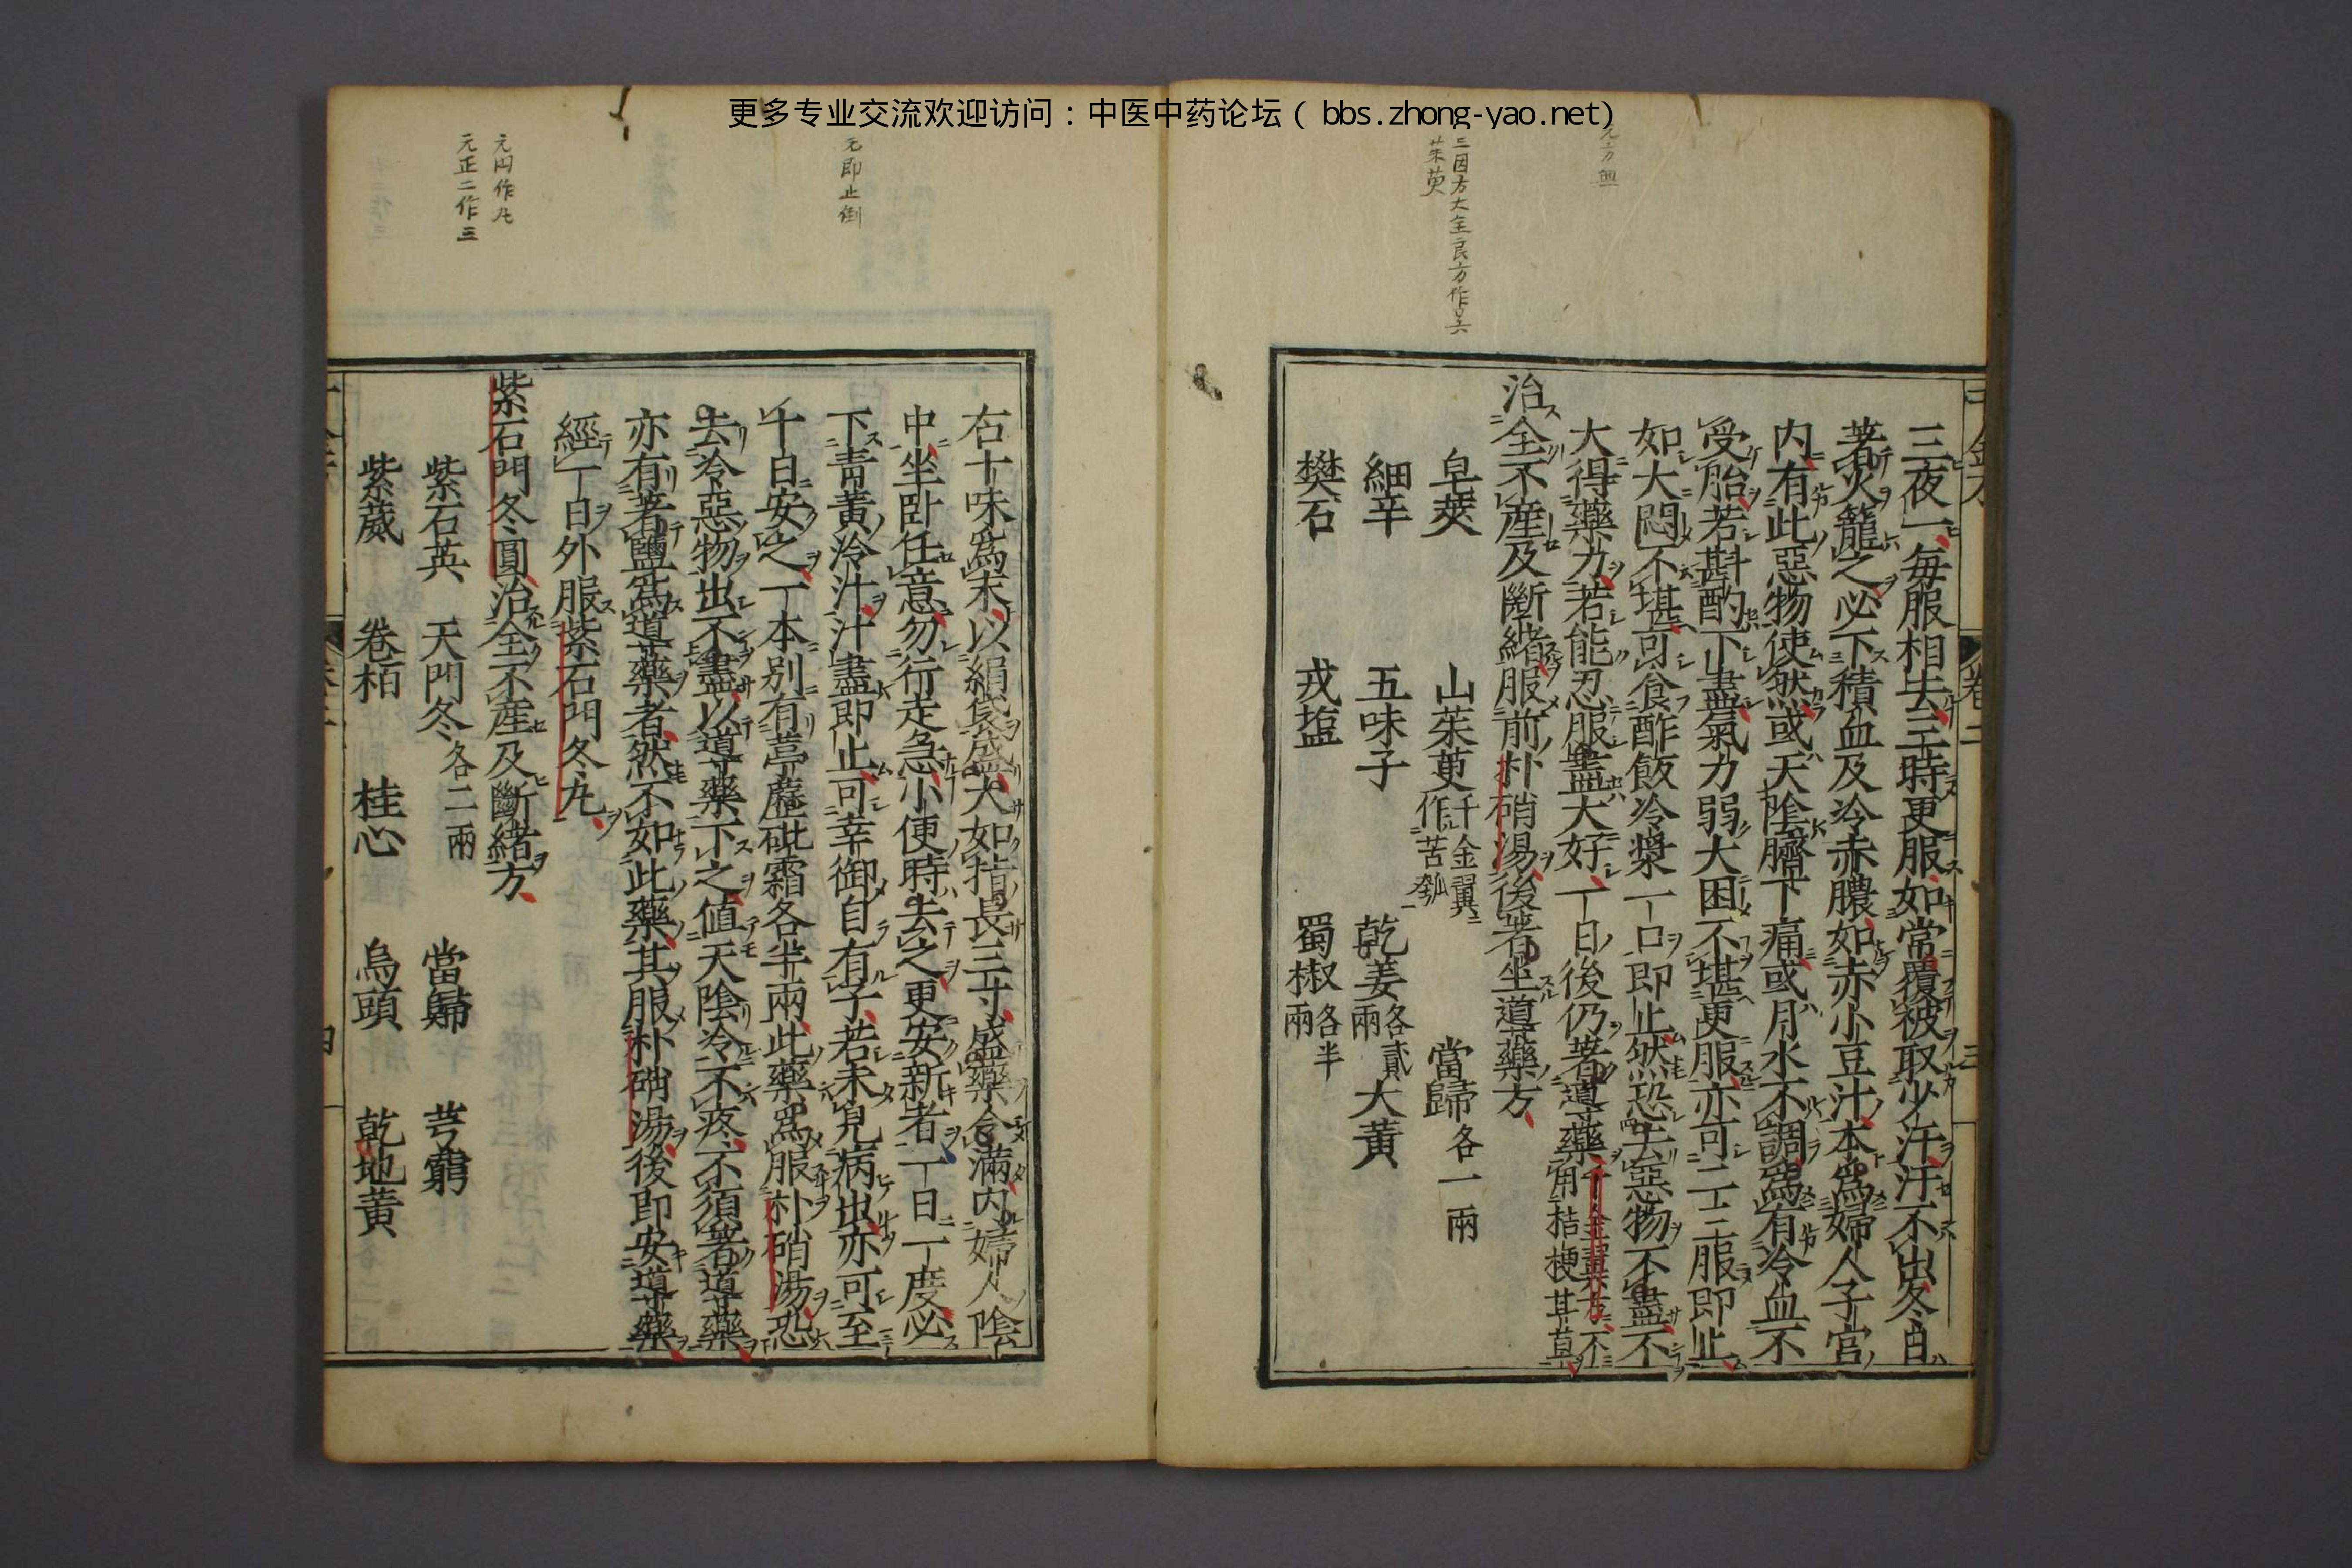 更多专业交流欢迎访问：中医中药论坛（bbs.zhong-yao.net）
三因方大全良方作吳
茱萸
三夜一每服相去三時更服如常覆被取少汗汗不出冬日
著火籠之必下積血及冷赤膿如赤小豆汁本爲婦人子宮
内有此惡物使然或天陰臍下痛或月水不調爲有冷血不
受胎若斟酌下盡氣力弱大困不堪更服亦可二三服即止
如大悶不堪可食酢飯冷漿一口即止然恐去惡物不盡不
大得藥力若能忍服盡大好一日後仍著導藥千金翼方不
用桔梗甘草
治全不產及斷緒服前朴硝湯後著坐導藥方
皂莢 山茱萸千金翼
作苦瓠 當歸各一兩
細辛 五味子 乾姜各貳
兩 大黃
樊石 戎塩 蜀椒各半
兩
元即止倒
元円作丸
元正二作三
右十味爲末以絹袋盛大如指長三寸盛藥令滿内婦人陰
中坐卧任意勿行走急小便時去之更安新者一日一度必
下青黃冷汁汁盡即止可幸御自有子若未見病出亦可至
十日安之一本別有葶藶砒霜各半兩此藥爲服朴硝湯恐
去冷惡物出不盡以導藥下之值天陰冷不疼不須著導藥
亦有著鹽爲導藥者然不如此藥其服朴硝湯後即安導藥
經一日外服紫石門冬丸
紫石門冬圓治全不產及斷緒方
紫石英 天門冬各二兩 當歸 芎藭
紫葳 卷栢 桂心 烏頭 乾地黃